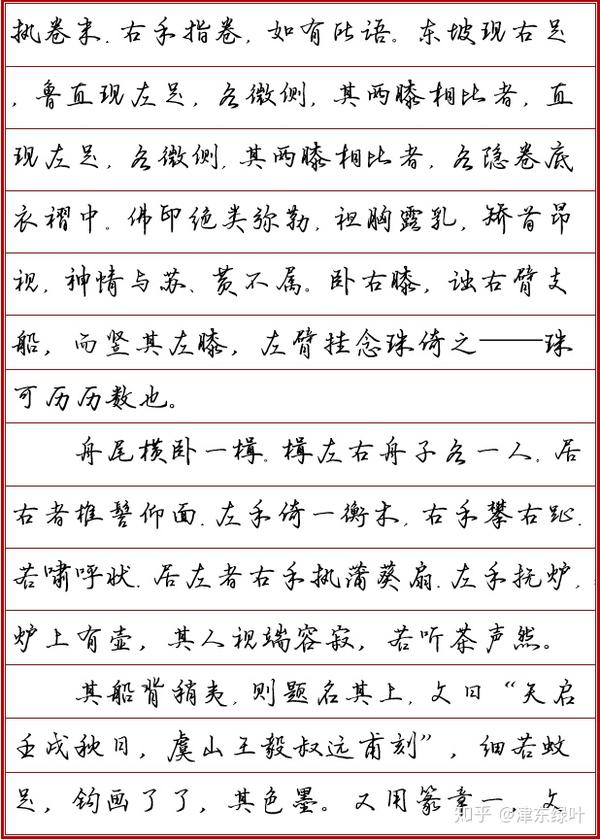 执卷末，右手指卷，如有所语。东坡现右足
，鲁直现左足，各微侧，其两膝相比者，直
现左足，各微侧，其两膝相比者，各隐卷底
衣褶中。佛印绝类弥勒，袒胸露乳，矫首昂
视，神情与苏、黄不属。卧右膝，诎右臂支
船，而竖其左膝，左臂挂念珠倚之——珠
可历历数也。
舟尾横卧一楫。楫左右舟子各一人。居
右者椎髻仰面，左手倚一衡木，右手攀右趾，
若啸呼状。居左者右手执蒲葵扇，左手抚炉，
炉上有壶，其人视端容寂，若听茶声然。
其船背稍夷，则题名其上，文曰“天启
壬戌秋日，虞山王毅叔远甫刻”，细若蚊
足，钩画了了，其色墨。又用篆章一，文
知乎 @津东绿叶